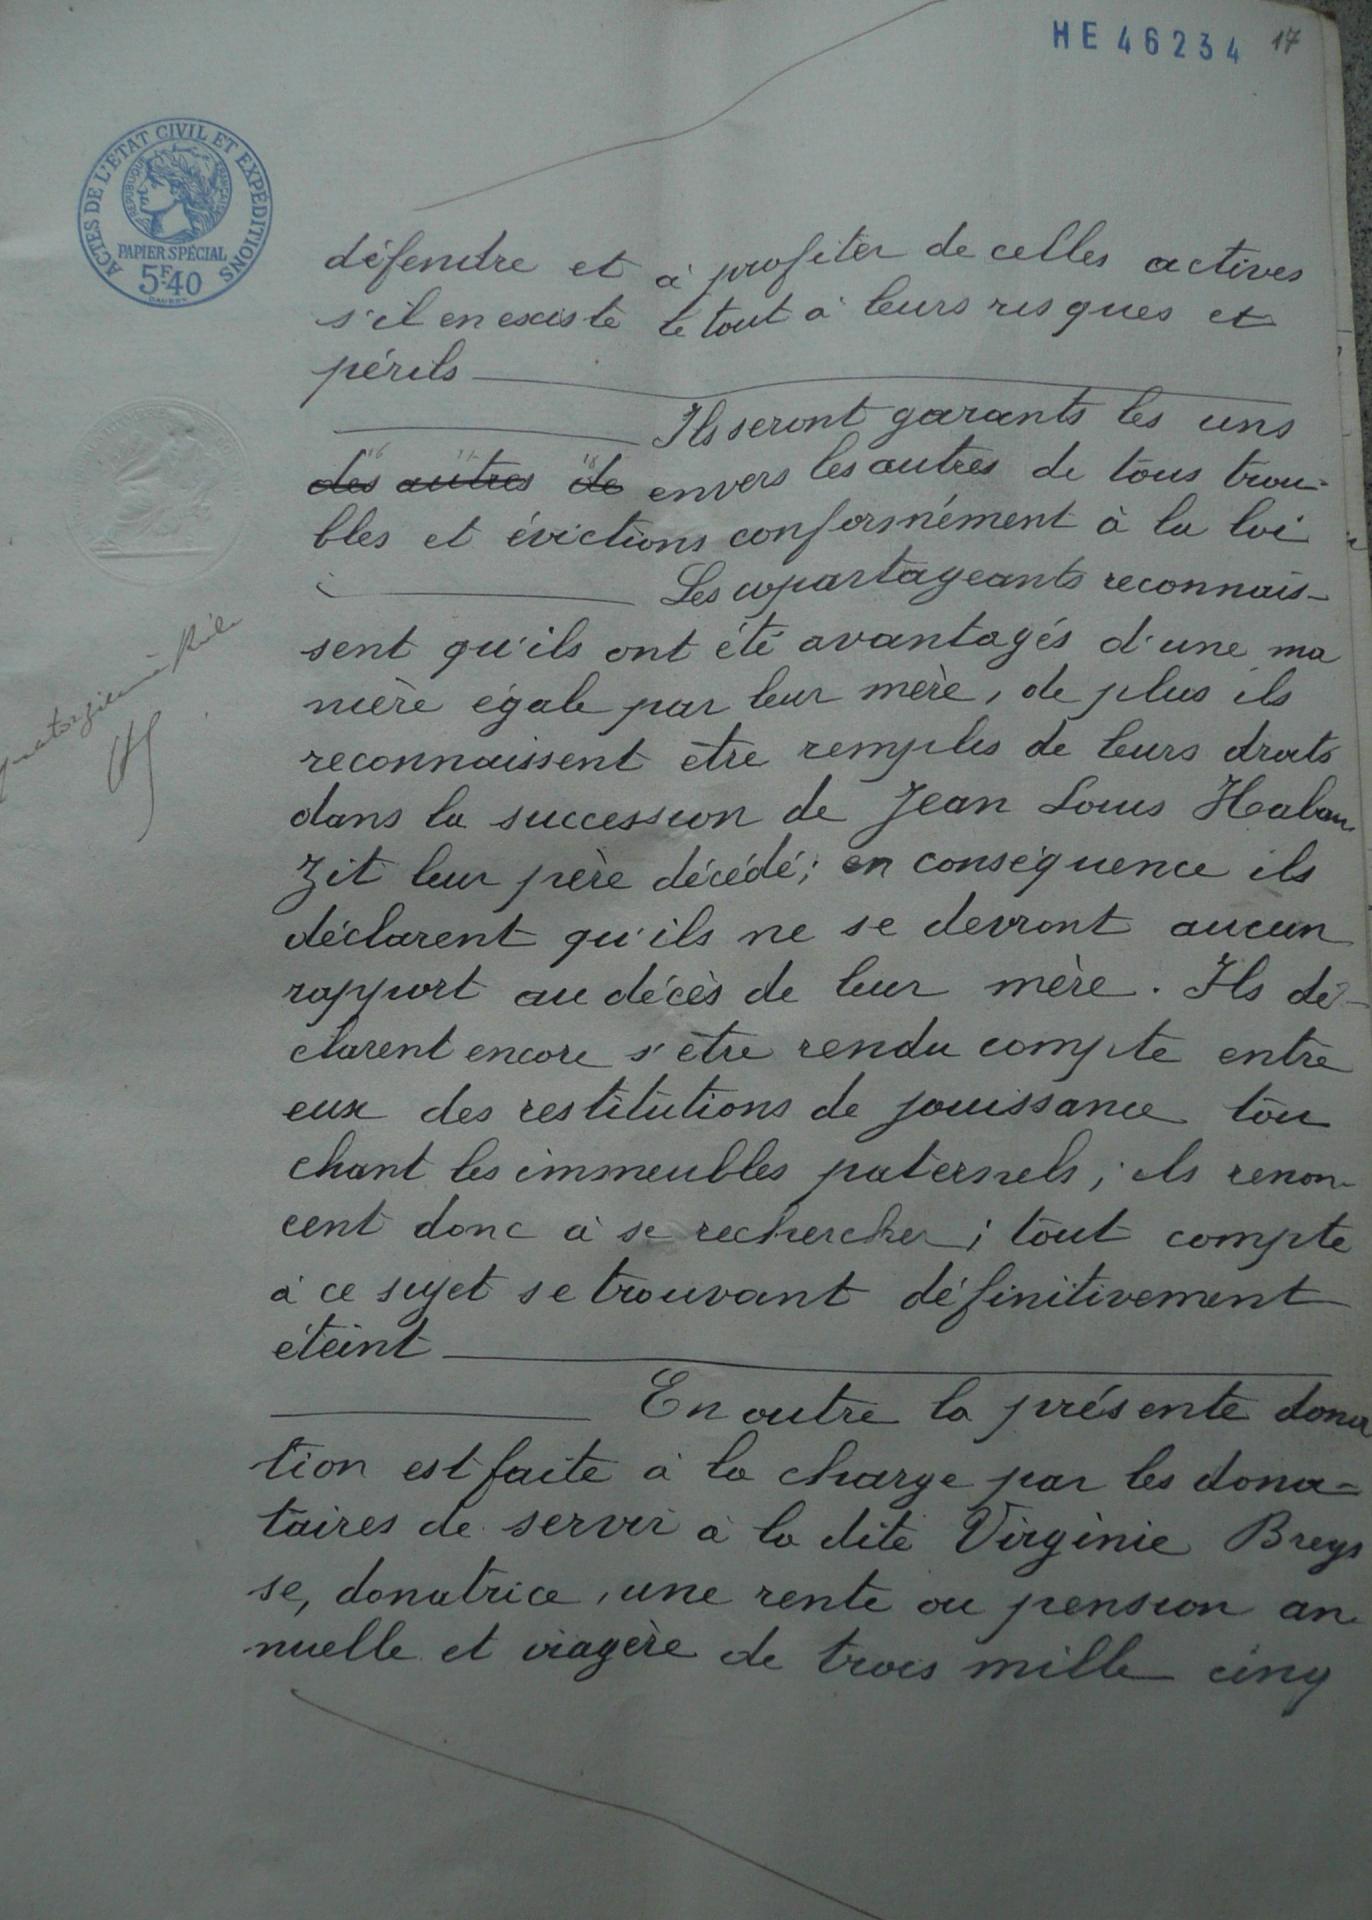 HE 46234 17
ACTES DE L'ETAT CIVIL ET EXPÉDITIONS
REPUBLIQUE FRANÇAISE
PAPIER SPÉCIAL
5F.40
défendre et à profiter de celles actives
s'il en existe le tout à leurs risques et
périls
Ils seront garants les uns
des autres de envers les autres de tous trou-
bles et évictions conformément à la loi
Les copartageants reconnais-
sent qu'ils ont été avantagés d'une ma
nière égale par leur mère, de plus ils
reconnaissent être remplis de leurs droits
dans la succession de Jean Louis Habau
zit leur père décédé; en conséquence ils
déclarent qu'ils ne se devront aucun
rapport au décès de leur mère. Ils dé-
clarent encore s'être rendu compte entre
eux des restitutions de jouissance tou
chant les immeubles paternels; ils renon-
cent donc à se rechercher; tout compte
à ce sujet se trouvant définitivement
éteint
En outre la présente dona
tion est faite à la charge par les dona=
taires de servir à la dite Virginie Breys
se, donatrice, une rente ou pension an
nuelle et viagère de trois mille cinq